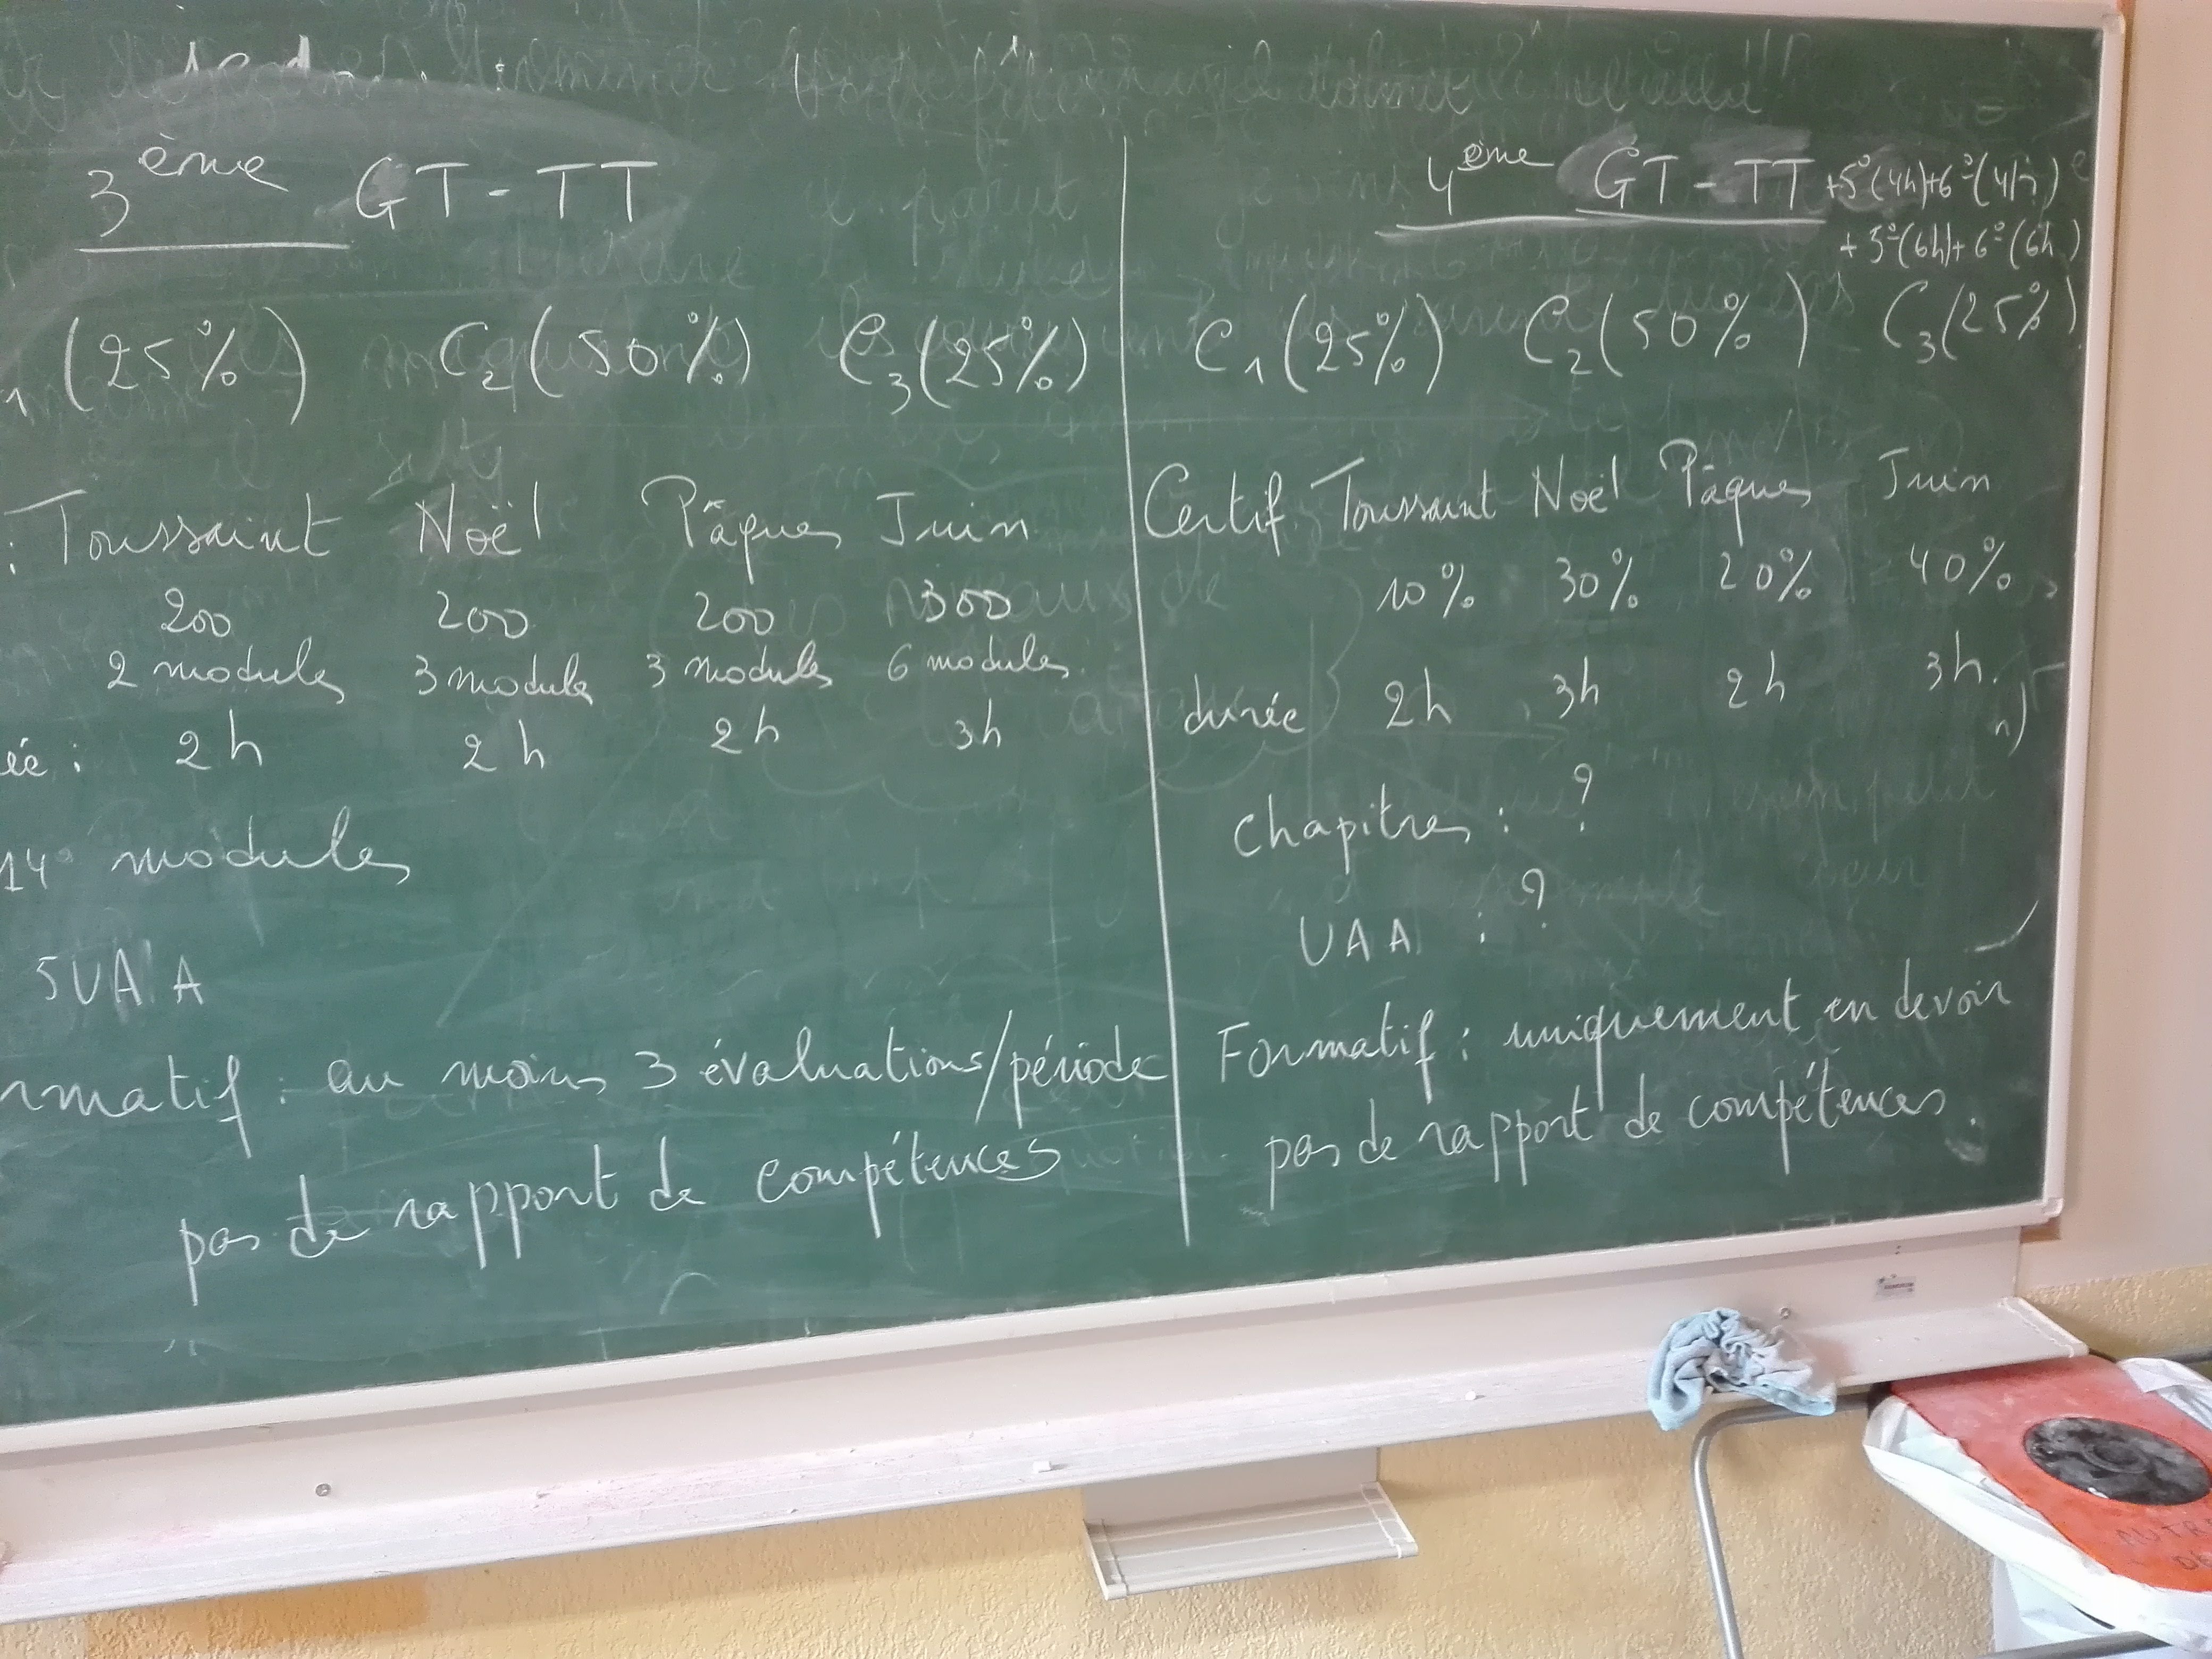 3ème GT-TT
1 (25%) C2 (50%) C3 (25%)
: Toussaint Noël Pâques Juin
200 200 200 300
2 modules 3 modules 3 modules 6 modules
ée : 2h 2h 2h 3h
14 modules
5 UAA
rmatif : au moins 3 évaluations/période
pas de rapport de compétences
4ème GT-TT +5e(4h)+6e(4h)
+ 5e(6h)+ 6e(6h)
C1 (25%) C2 (50%) C3 (25%)
Certif Toussaint Noël Pâques Juin
10% 30% 20% 40%
durée 2h 3h 2h 3h
chapitres : ?
UAA : ?
Formatif : uniquement en devoir
pas de rapport de compétences.